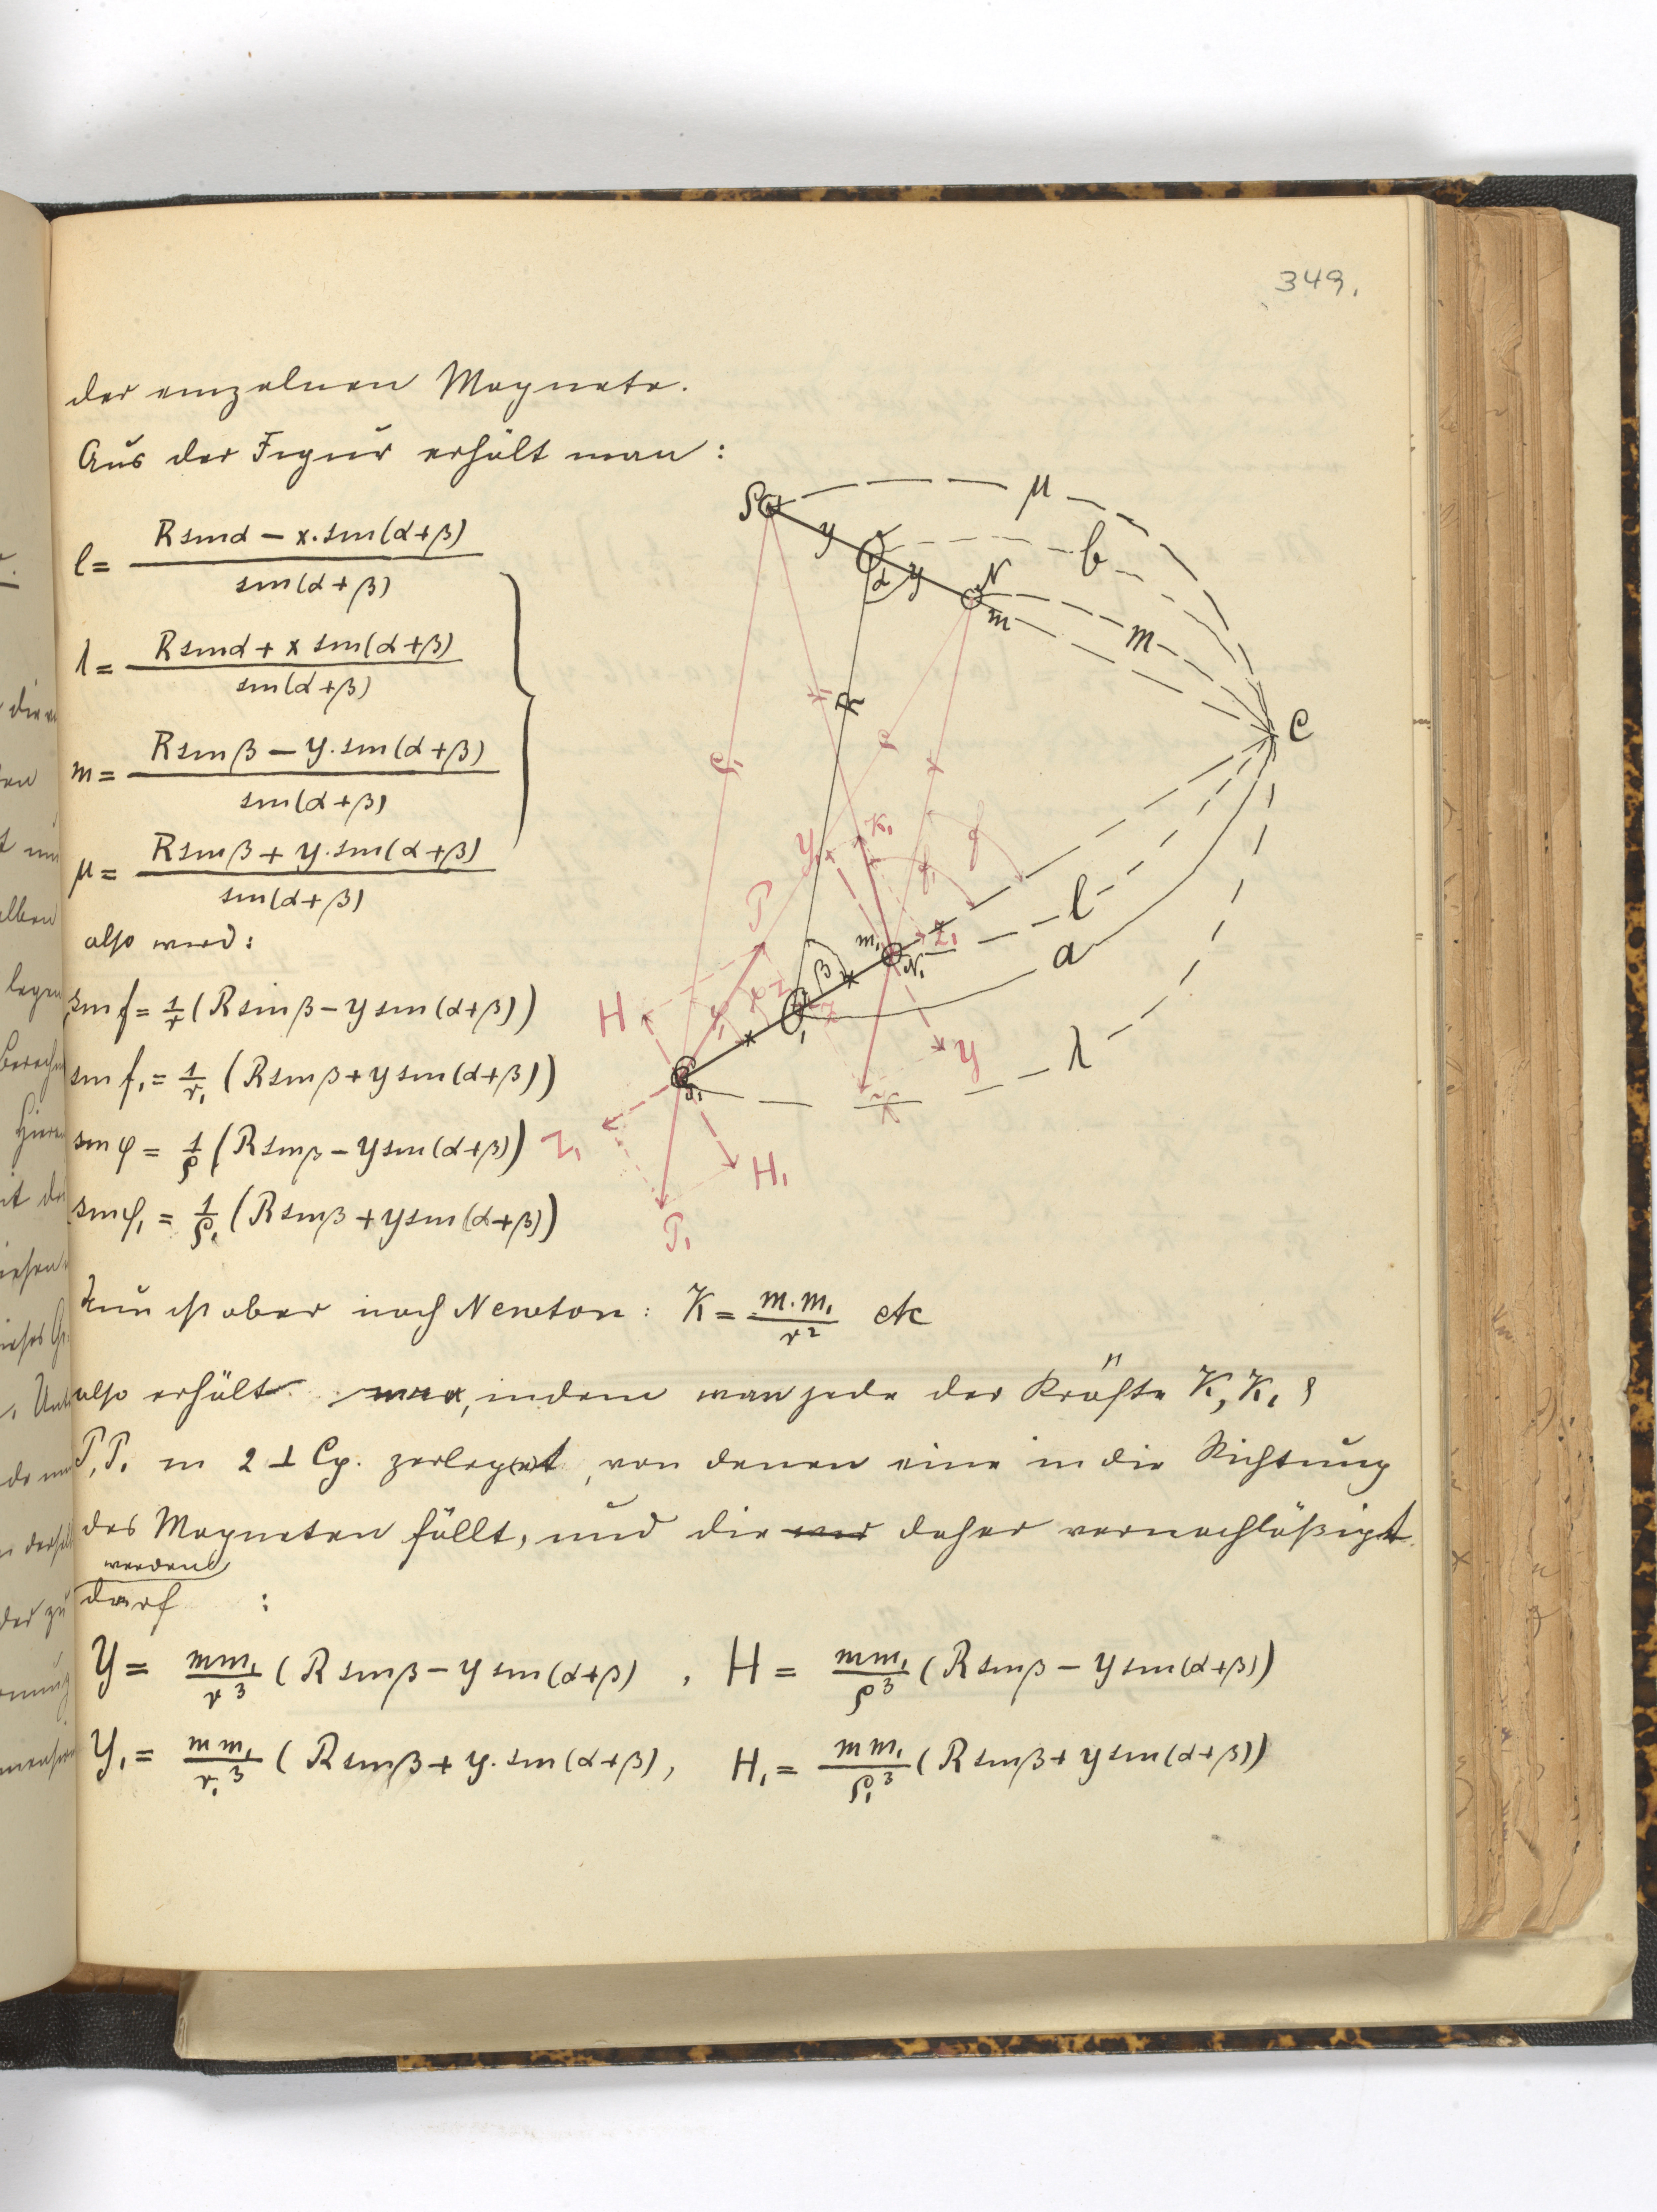 349.
der einzelnen Magnete.
Aus der Figur erhält man:
l = (R sin α − x. sin(α+β)) / sin(α+β)
λ = (R sin α + x sin(α+β)) / sin(α+β)
m = (R sin β − y. sin(α+β)) / sin(α+β)
μ = (R sin β + y. sin(α+β)) / sin(α+β)
also wird:
sin f = 1/r (R sin β − y sin(α+β))
sin f₁ = 1/r₁ (R sin β + y sin(α+β))
sin φ = 1/ρ (R sin β − y sin(α+β))
sin φ₁ = 1/ρ₁ (R sin β + y sin(α+β))
S μ
y O b
α y N
m m
R
ρ₁ r₁ ρ r
C
y₁ K₁ f₁ f
P
m₁ N₁ Z₁
l
a
β x
H φ₁ φ Z
O₁ x y
S₁ K λ
Z₁ H₁
P₁
Nun ist aber nach Newton: K = m.m₁/r² etc
also erhält man, indem man jede der Kräfte K, K₁,
P, P₁ in 2 ⊥ Cp. zerleg(e)t, von denen eine in die Richtung
des Magneten fällt, und die daher vernachläßigt
werden
darf :
Y = mm₁/r³ (R sin β − y sin(α+β) , H = mm₁/ρ³ (R sin β − y sin(α+β))
Y₁ = mm₁/r₁³ (R sin β + y. sin(α+β), H₁ = mm₁/ρ₁³ (R sin β + y sin(α+β))